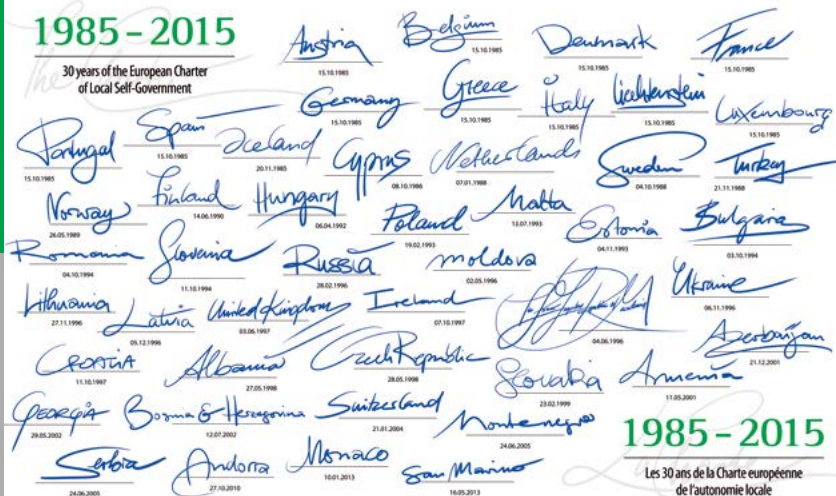 1985 – 2015
30 years of the European Charter
of Local Self-Government
Austria
15.10.1985
Belgium
15.10.1985
Denmark
15.10.1985
France
15.10.1985
Germany
15.10.1985
Greece
15.10.1985
Italy
15.10.1985
Liechtenstein
15.10.1985
Luxembourg
15.10.1985
Portugal
15.10.1985
Spain
15.10.1985
Iceland
20.11.1985
Cyprus
08.10.1986
Netherlands
07.01.1988
Sweden
04.10.1988
Turkey
21.11.1988
Norway
26.05.1989
Finland
14.06.1990
Hungary
06.04.1992
Poland
19.02.1993
Malta
13.07.1993
Estonia
04.11.1993
Bulgaria
03.10.1994
Romania
04.10.1994
Slovenia
11.10.1994
Russia
28.02.1996
Moldova
02.05.1996
04.06.1996
Ukraine
06.11.1996
Lithuania
27.11.1996
Latvia
05.12.1996
United Kingdom
03.06.1997
Ireland
07.10.1997
Croatia
11.10.1997
Albania
27.05.1998
Czech Republic
28.05.1998
Slovakia
23.02.1999
Armenia
11.05.2001
Azerbaijan
21.12.2001
Georgia
29.05.2002
Bosnia & Herzegovina
12.07.2002
Switzerland
21.01.2004
Montenegro
24.06.2005
Serbia
24.06.2005
Andorra
27.10.2010
Monaco
10.01.2013
San Marino
16.05.2013
1985 – 2015
Les 30 ans de la Charte européenne
de l'autonomie locale